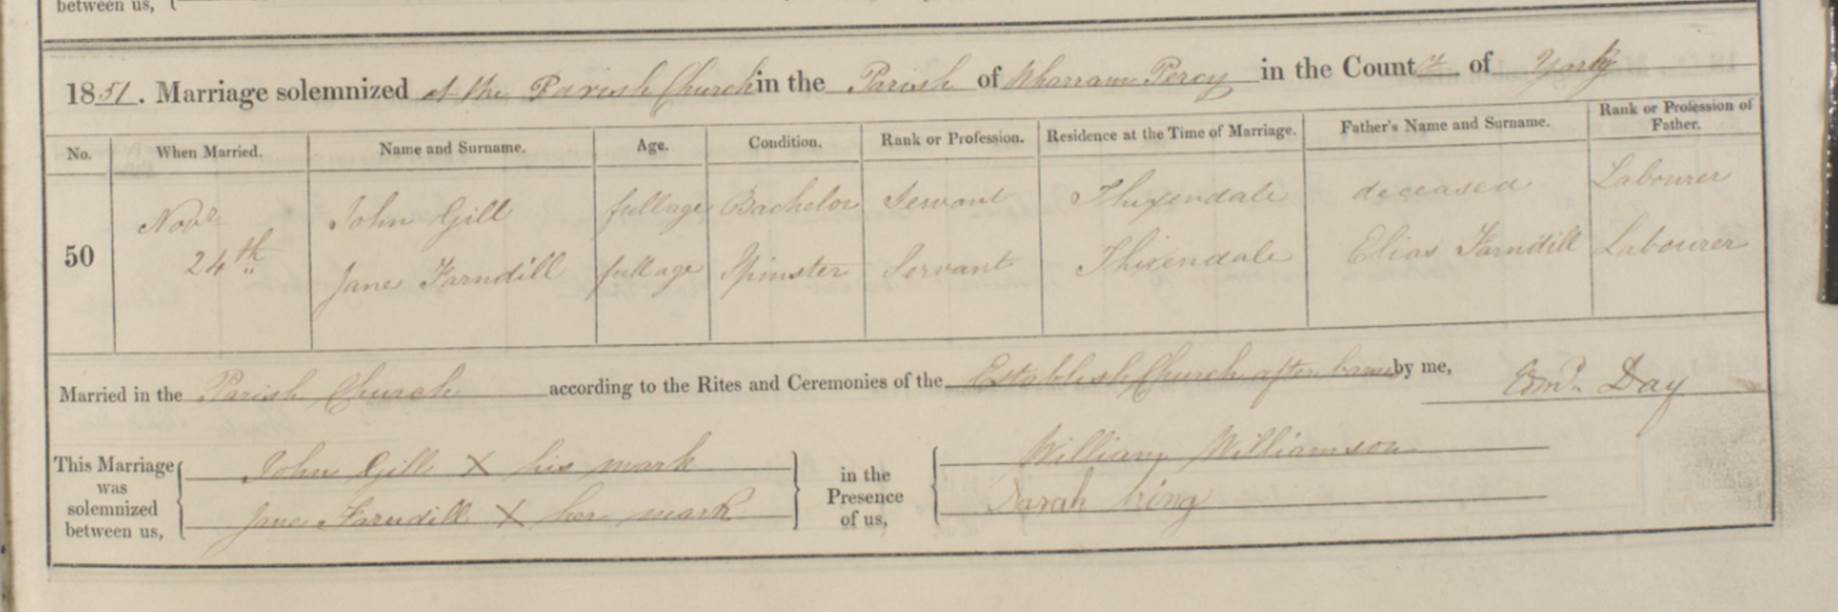 between us,
1851. Marriage solemnized at the Parish Church in the Parish of Wharram Percy in the County of York
No. When Married. Name and Surname. Age. Condition. Rank or Profession. Residence at the Time of Marriage. Father's Name and Surname. Rank or Profession of Father.
50 Novr 24th
John Gill full age Bachelor Servant Thixendale deceased Labourer
Jane Farndill full age Spinster Servant Thixendale Elias Farndill Labourer
Married in the Parish Church according to the Rites and Ceremonies of the Establish Church after banns by me, Day
This Marriage was solemnized between us,
John Gill X his mark
Jane Farndill X her mark
in the Presence of us,
William Williamson
Sarah